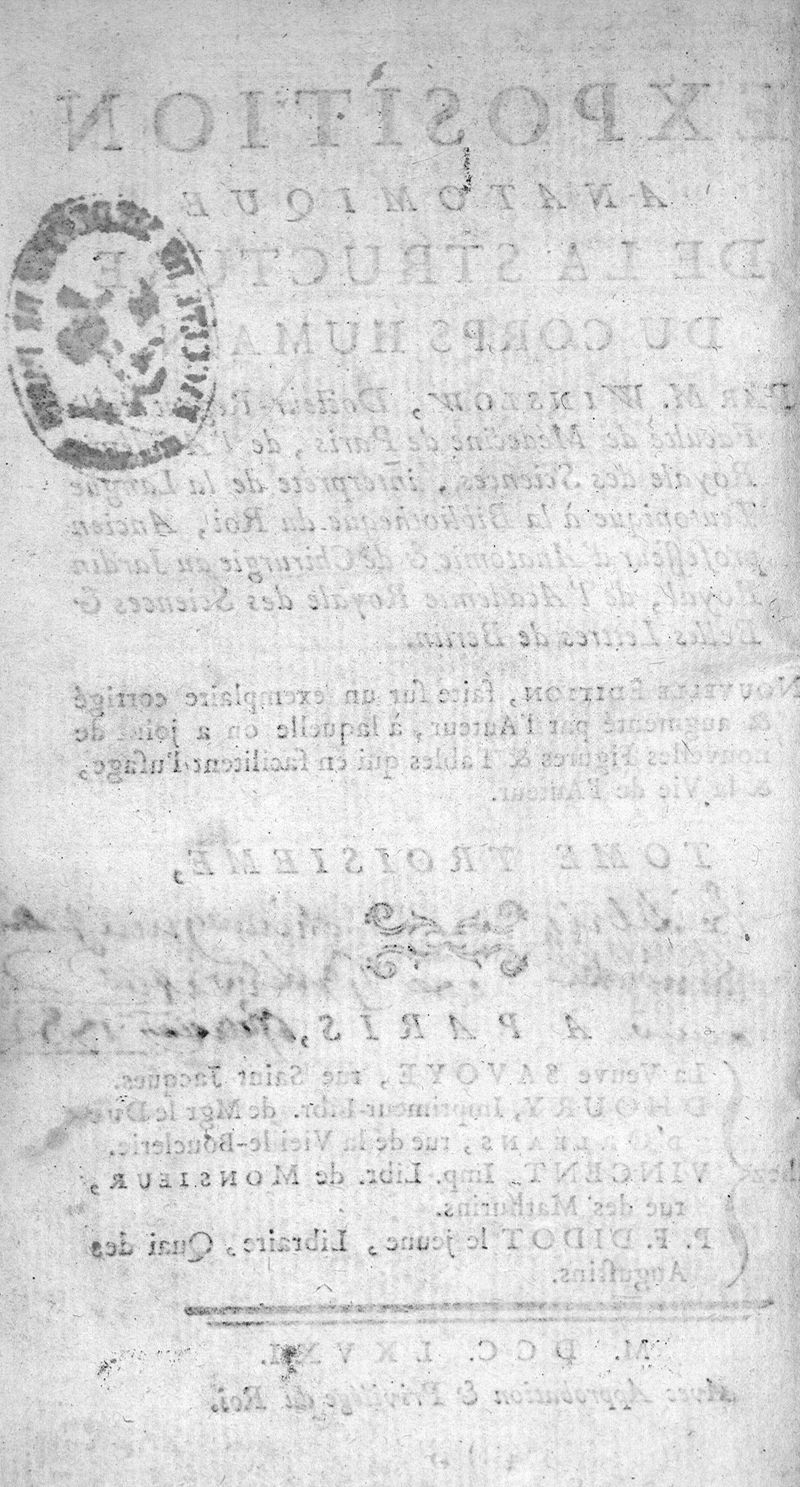 EXPOSITION
ANATOMIQUE
DE LA STRUCTURE
DU CORPS HUMAIN
PAR M. WINSLOW, Docteur-Régent de la
Faculté de Médecine de Paris, de l'Académie
Royale des Sciences, interprete de la Langue
Teutonique à la Bibliotheque du Roi, Ancien
professeur d'Anatomie & de Chirurgie au Jardin
Royal, de l'Academie Royale des Sciences &
Belles Lettres de Berlin.
NOUVELLE EDITION, faite sur un exemplaire corrigé
& augmenté par l'Auteur, à laquelle on a joint de
nouvelles Figures & Tables qui en facilitent l'usage,
& la Vie de l'Auteur.
TOME TROISIEME,
A PARIS,
La Veuve SAVOYE, rue Saint Jacques.
DHOURY, Imprimeur-Libr. de Mgr le Duc
D'ORLEANS, rue de la Vieille-Bouclerie.
Chez VINCENT, Imp. Libr. de MONSIEUR,
rue des Mathurins.
P. F. DIDOT le jeune, Libraire, Quai des
Augustins.
M. DCC.
Avec Approbation & Privilége du Roi.